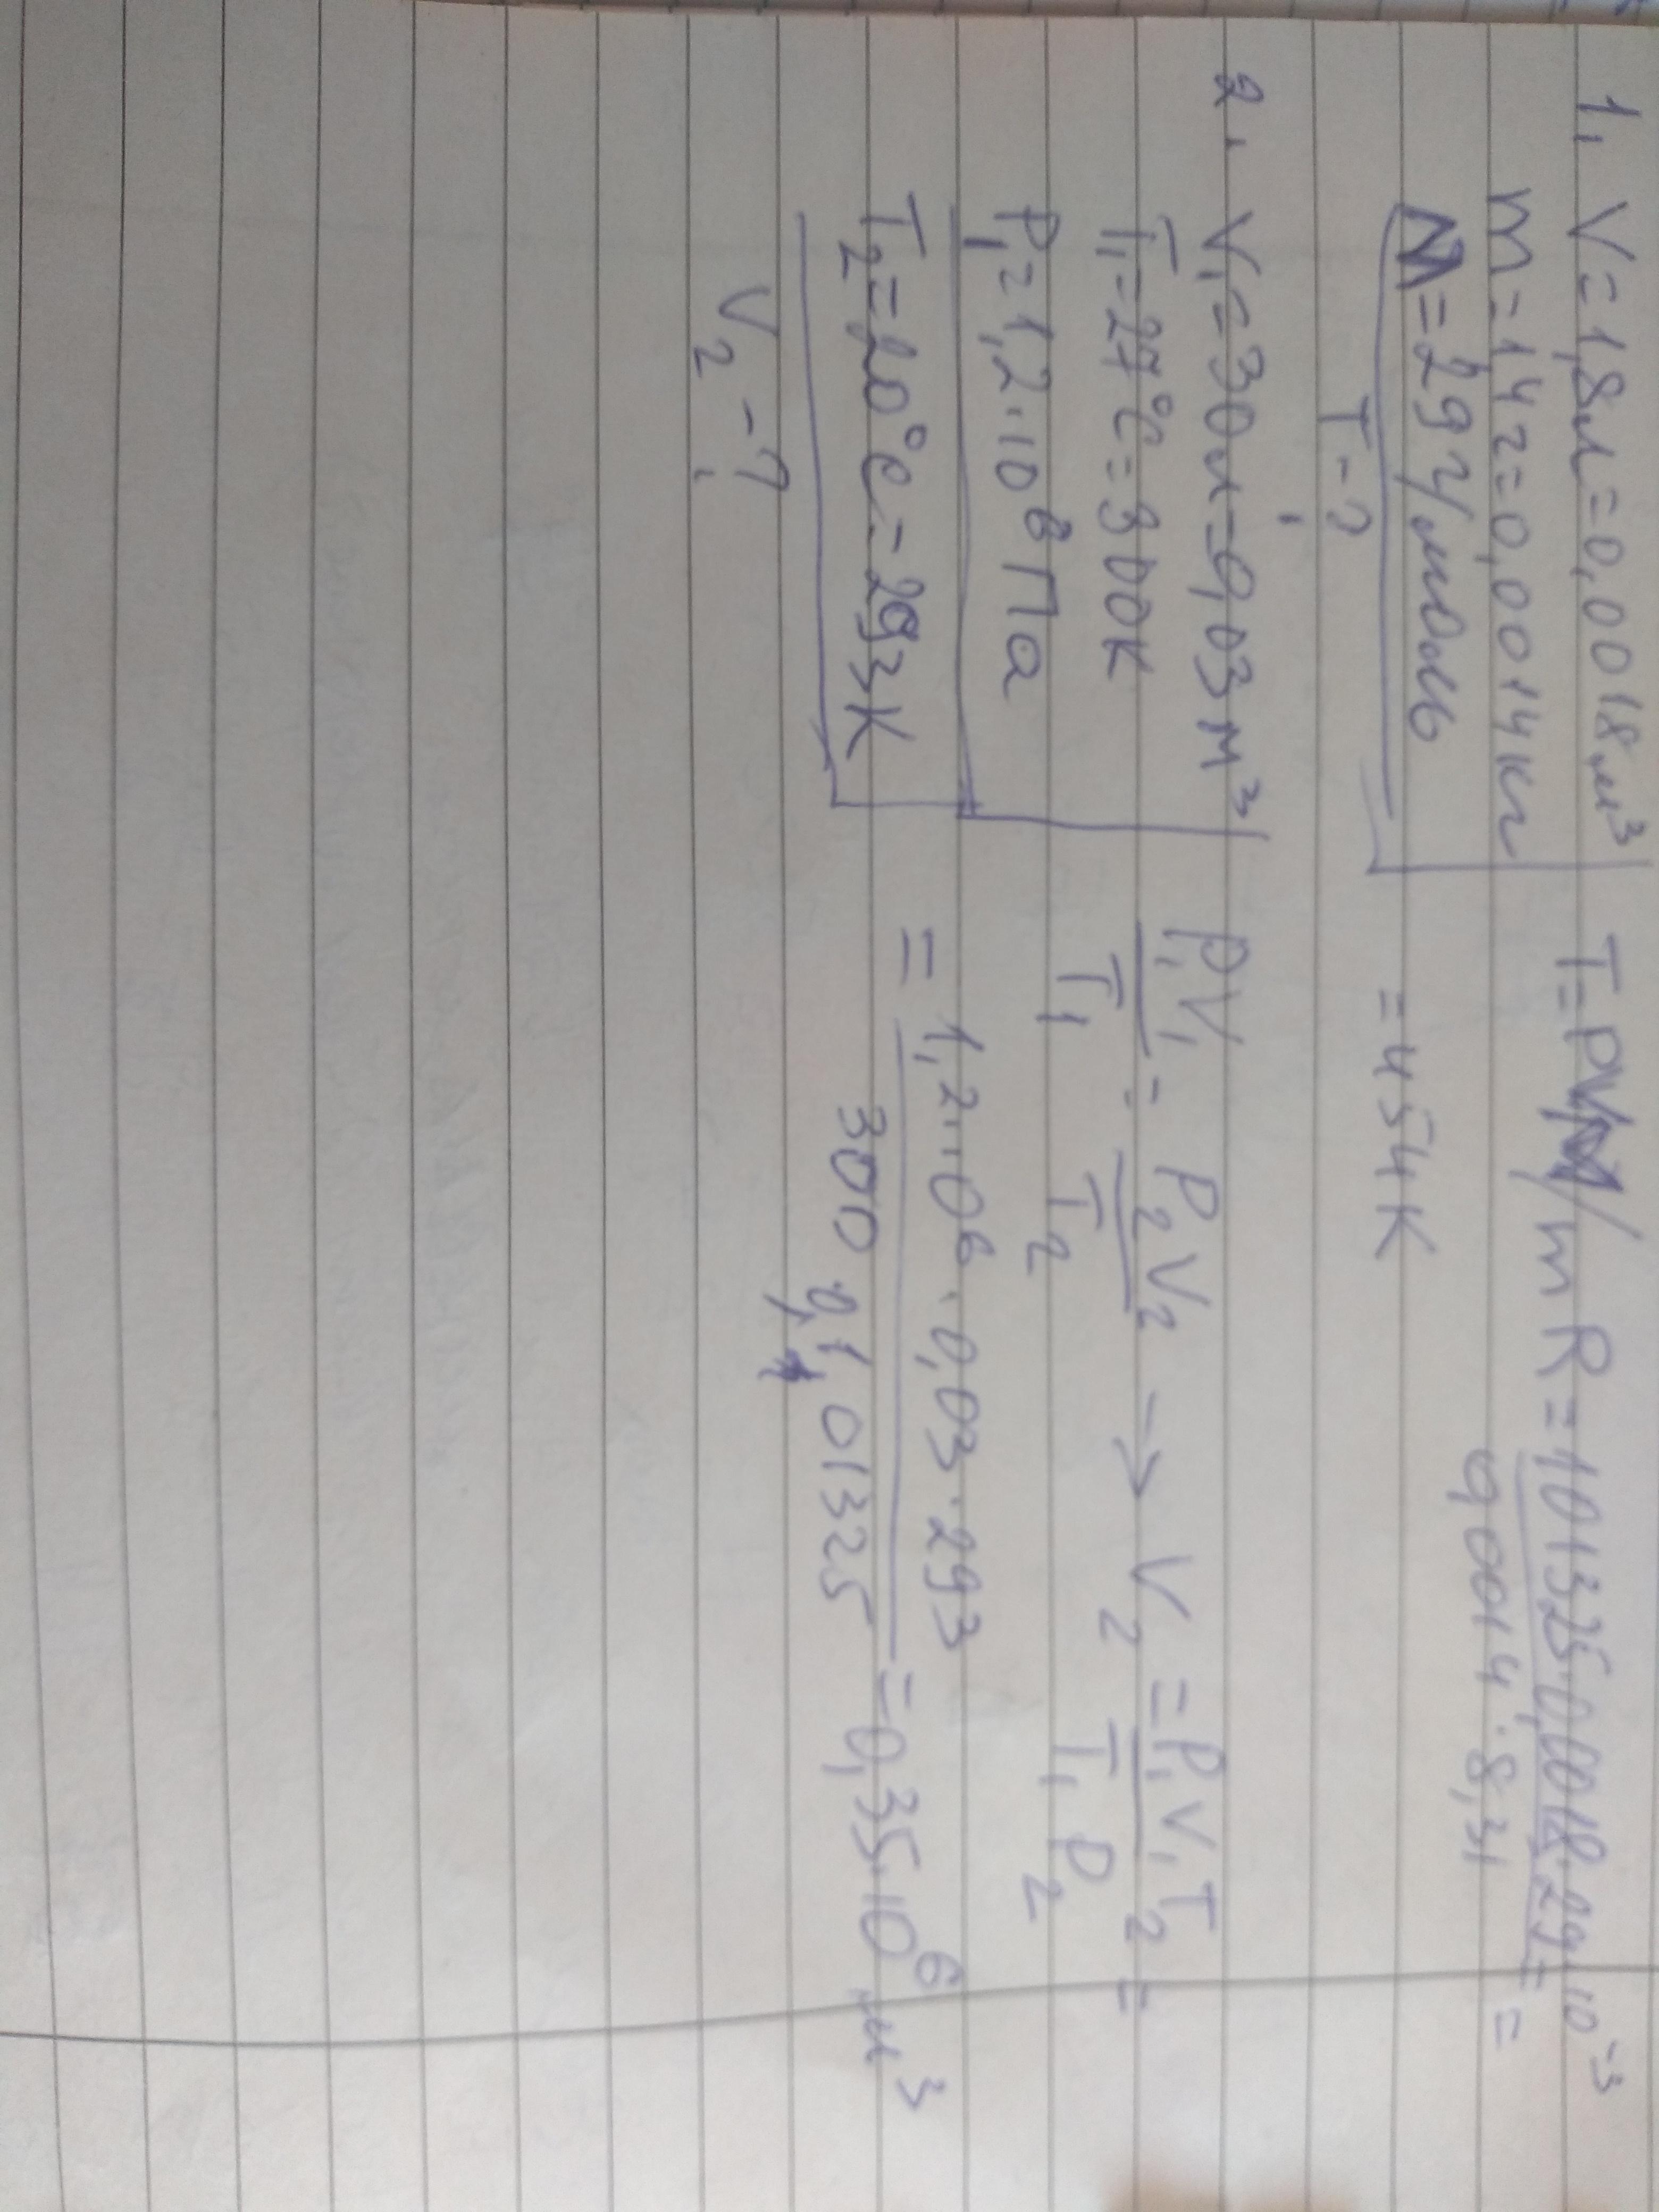 1. V=1,8л=0,0018м³
m=1,4г=0,0014кг
M=29г/моль
T-?
T=PVM/mR=101325·0,0018·29·10⁻³=
0,0014·8,31
=454K
2. V₁=30л=0,03м³
T₁=27°C=300K
P₁=1,2·10⁶Па
T₂=20°C=293K
V₂-?
P₁V₁/T₁=P₂V₂/T₂→V₂=P₁V₁T₂/T₁P₂=
=1,2·10⁶·0,03·293
300·0,101325
=0,35·10⁶м³